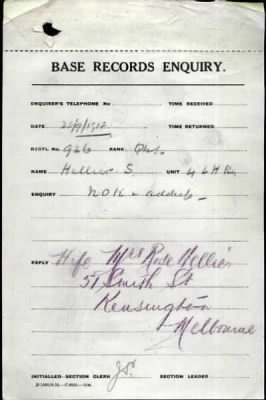 BASE RECORDS ENQUIRY.
ENQUIRER'S TELEPHONE No TIME RECEIVED
DATE TIME RETURNED
REGTL No. 926 RANK Pte.
NAME Hellier S. UNIT 46 Bn
ENQUIRY NOK & address
REPLY Wife Mrs Rose Hellier
51 Smith St
Kensington
Melbourne
INITIALLED—SECTION CLERK SECTION LEADER